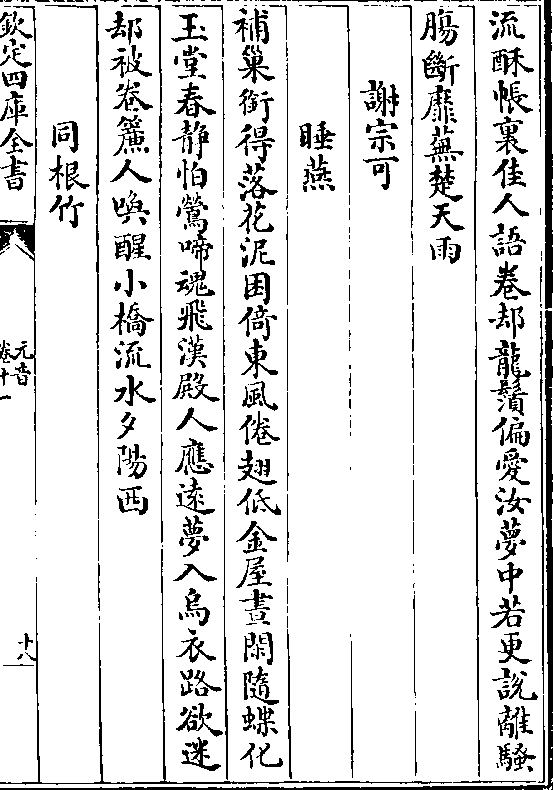 流酥帳裏佳人語卷却龍鬚偏愛汝夢中若更說離騷
腸斷蘼蕪楚天雨
謝宗可
睡燕
補巢銜得落花泥困倚東風倦翅低金屋晝閑隨蝶化
玉堂春靜怕鶯啼魂飛漢殿人應遠夢入烏衣路欲迷
却被卷簾人喚醒小橋流水夕陽西
同根竹
欽定四庫全書
元音
卷十一
十八